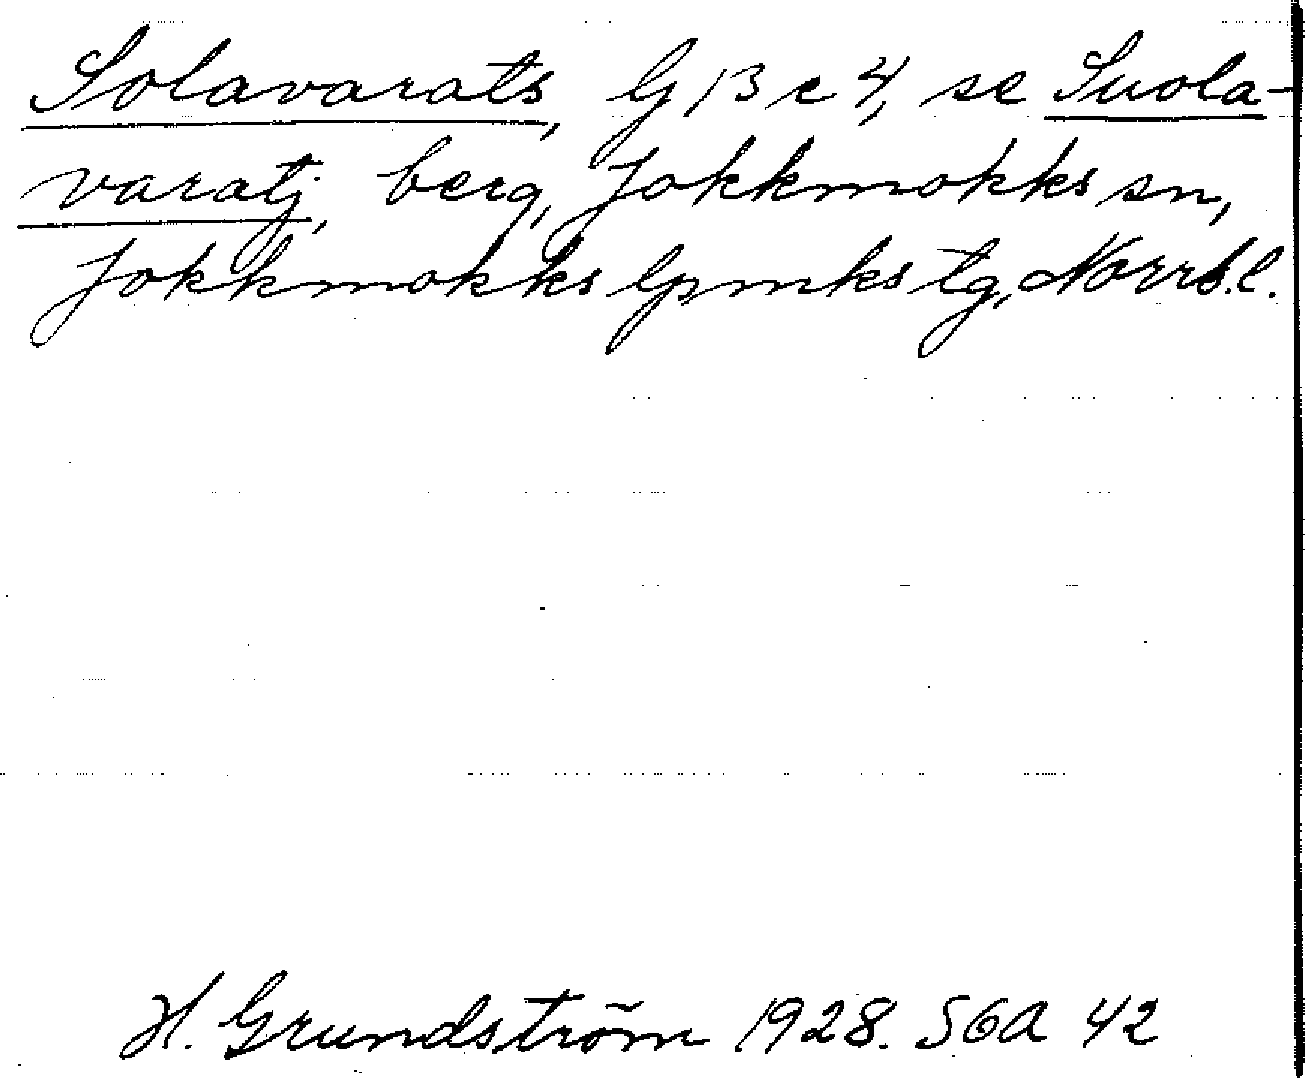 Solavarats, G 13 c 4, se Suola-
varatj, berg, Jokkmokks sn,
Jokkmokks lpmks tg, Norrb.l.
H. Grundström 1928. SGA 42